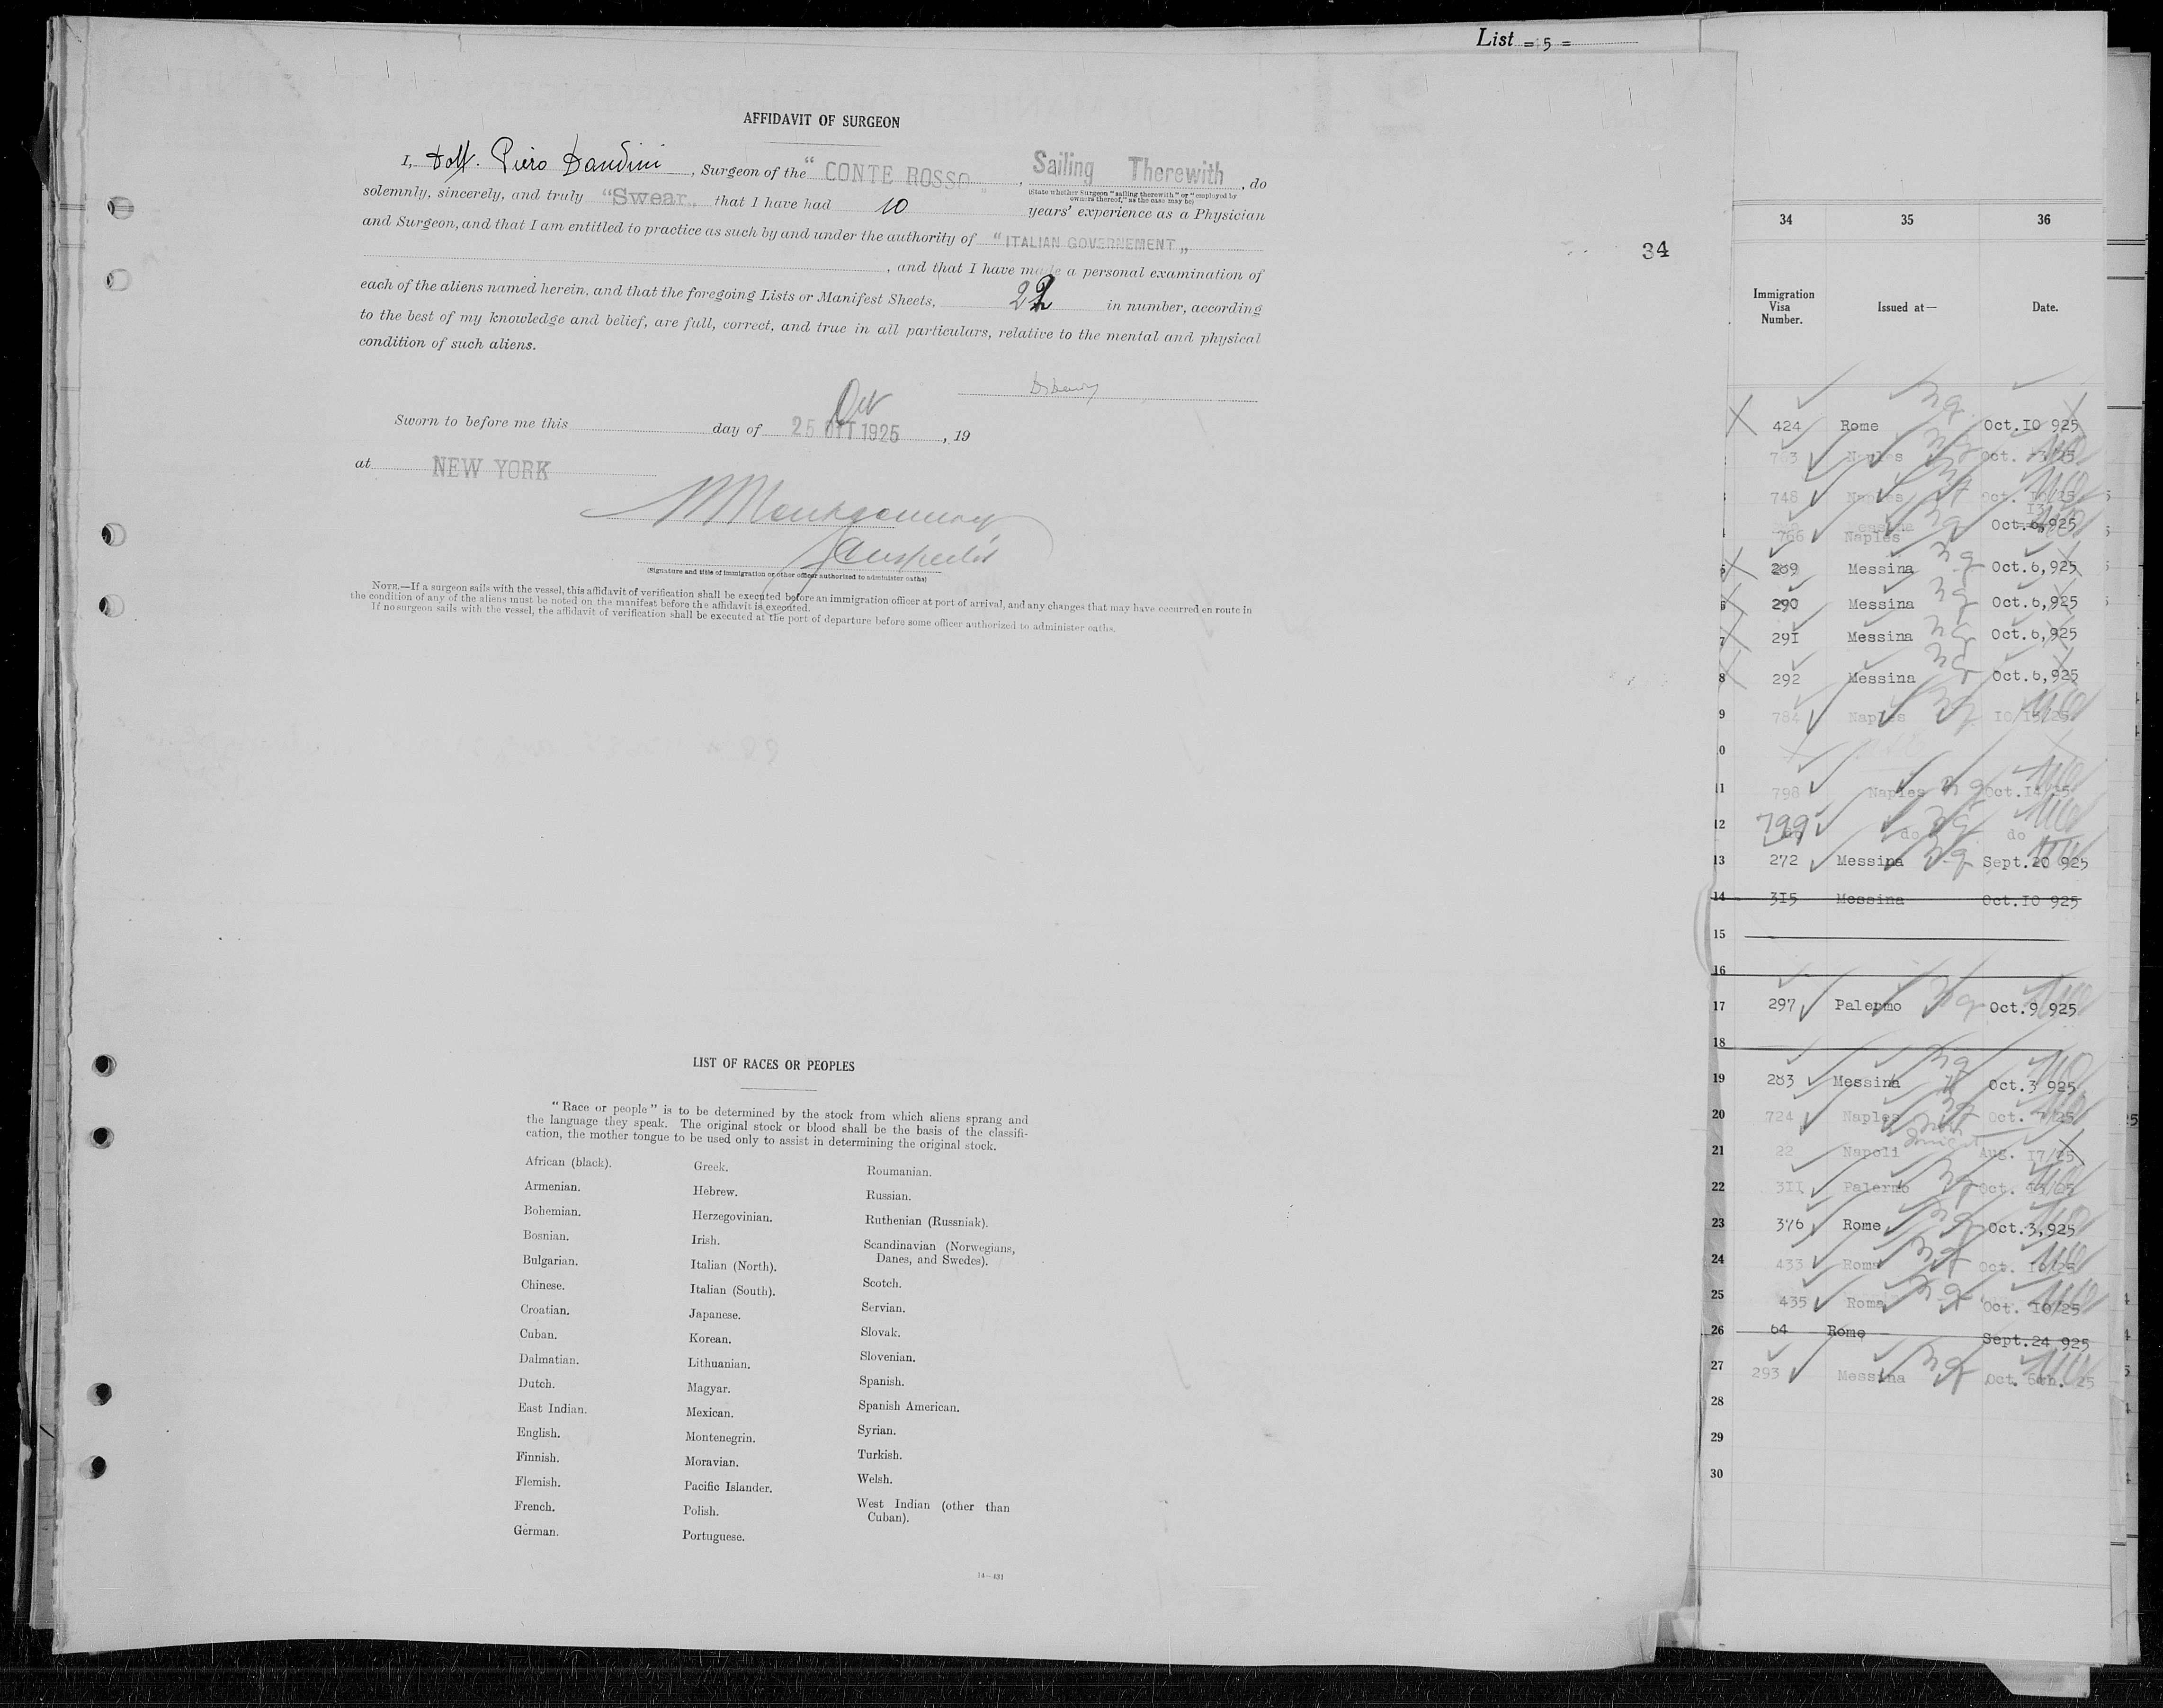 List = 5 =
AFFIDAVIT OF SURGEON
I, Dott. Piero Dandini, Surgeon of the "CONTE ROSSO", Sailing Therewith, do
(State whether Surgeon "sailing therewith" or "employed by owners thereof," as the case may be)
solemnly, sincerely, and truly "Swear" that I have had 10 years' experience as a Physician
and Surgeon, and that I am entitled to practice as such by and under the authority of "ITALIAN GOVERNEMENT"
, and that I have made a personal examination of
each of the aliens named herein, and that the foregoing Lists or Manifest Sheets, 22 in number, according
to the best of my knowledge and belief, are full, correct, and true in all particulars, relative to the mental and physical
condition of such aliens.
Sworn to before me this day of 25 OTT 1925, 19
Oct
at NEW YORK
Montgomery
Inspector
(Signature and title of immigration or other officer authorized to administer oaths)
NOTE.—If a surgeon sails with the vessel, this affidavit of verification shall be executed before an immigration officer at port of arrival, and any changes that may have occurred en route in
the condition of any of the aliens must be noted on the manifest before the affidavit is executed.
If no surgeon sails with the vessel, the affidavit of verification shall be executed at the port of departure before some officer authorized to administer oaths.
LIST OF RACES OR PEOPLES
"Race or people" is to be determined by the stock from which aliens sprang and
the language they speak. The original stock or blood shall be the basis of the classifi-
cation, the mother tongue to be used only to assist in determining the original stock.
African (black).
Armenian.
Bohemian.
Bosnian.
Bulgarian.
Chinese.
Croatian.
Cuban.
Dalmatian.
Dutch.
East Indian.
English.
Finnish.
Flemish.
French.
German.
Greek.
Hebrew.
Herzegovinian.
Irish.
Italian (North).
Italian (South).
Japanese.
Korean.
Lithuanian.
Magyar.
Mexican.
Montenegrin.
Moravian.
Pacific Islander.
Polish.
Portuguese.
Roumanian.
Russian.
Ruthenian (Russniak).
Scandinavian (Norwegians,
Danes, and Swedes).
Scotch.
Servian.
Slovak.
Slovenian.
Spanish.
Spanish American.
Syrian.
Turkish.
Welsh.
West Indian (other than
Cuban).
14—431
34
34 35 36
Immigration Visa Number. Issued at— Date.
424 Rome Oct.10 925
Naples Oct. 13/25
748 Naples Oct. 10/25
766 Naples Oct. 13 925
5 289 Messina Oct.6,925
6 290 Messina Oct.6,925
7 291 Messina Oct.6,925
8 292 Messina Oct.6,925
9 784 Naples 10/13/25
10
11 798 Naples Oct.14/25
12 799 do do
13 272 Messina Sept.20 925
14 315 Messina Oct.10 925
15
16
17 297 Palermo Oct.9 925
18
19 283 Messina Oct.3 925
20 724 Naples Oct. 7/25
21 22 Napoli Aug. 17/25
22 311 Palermo Oct.
23 376 Rome Oct.3,925
24 433 Roma Oct. 10/25
25 435 Roma Oct. 10/25
26 64 Rome Sept.24 925
27 293 Messina Oct. 6th. 25
28
29
30